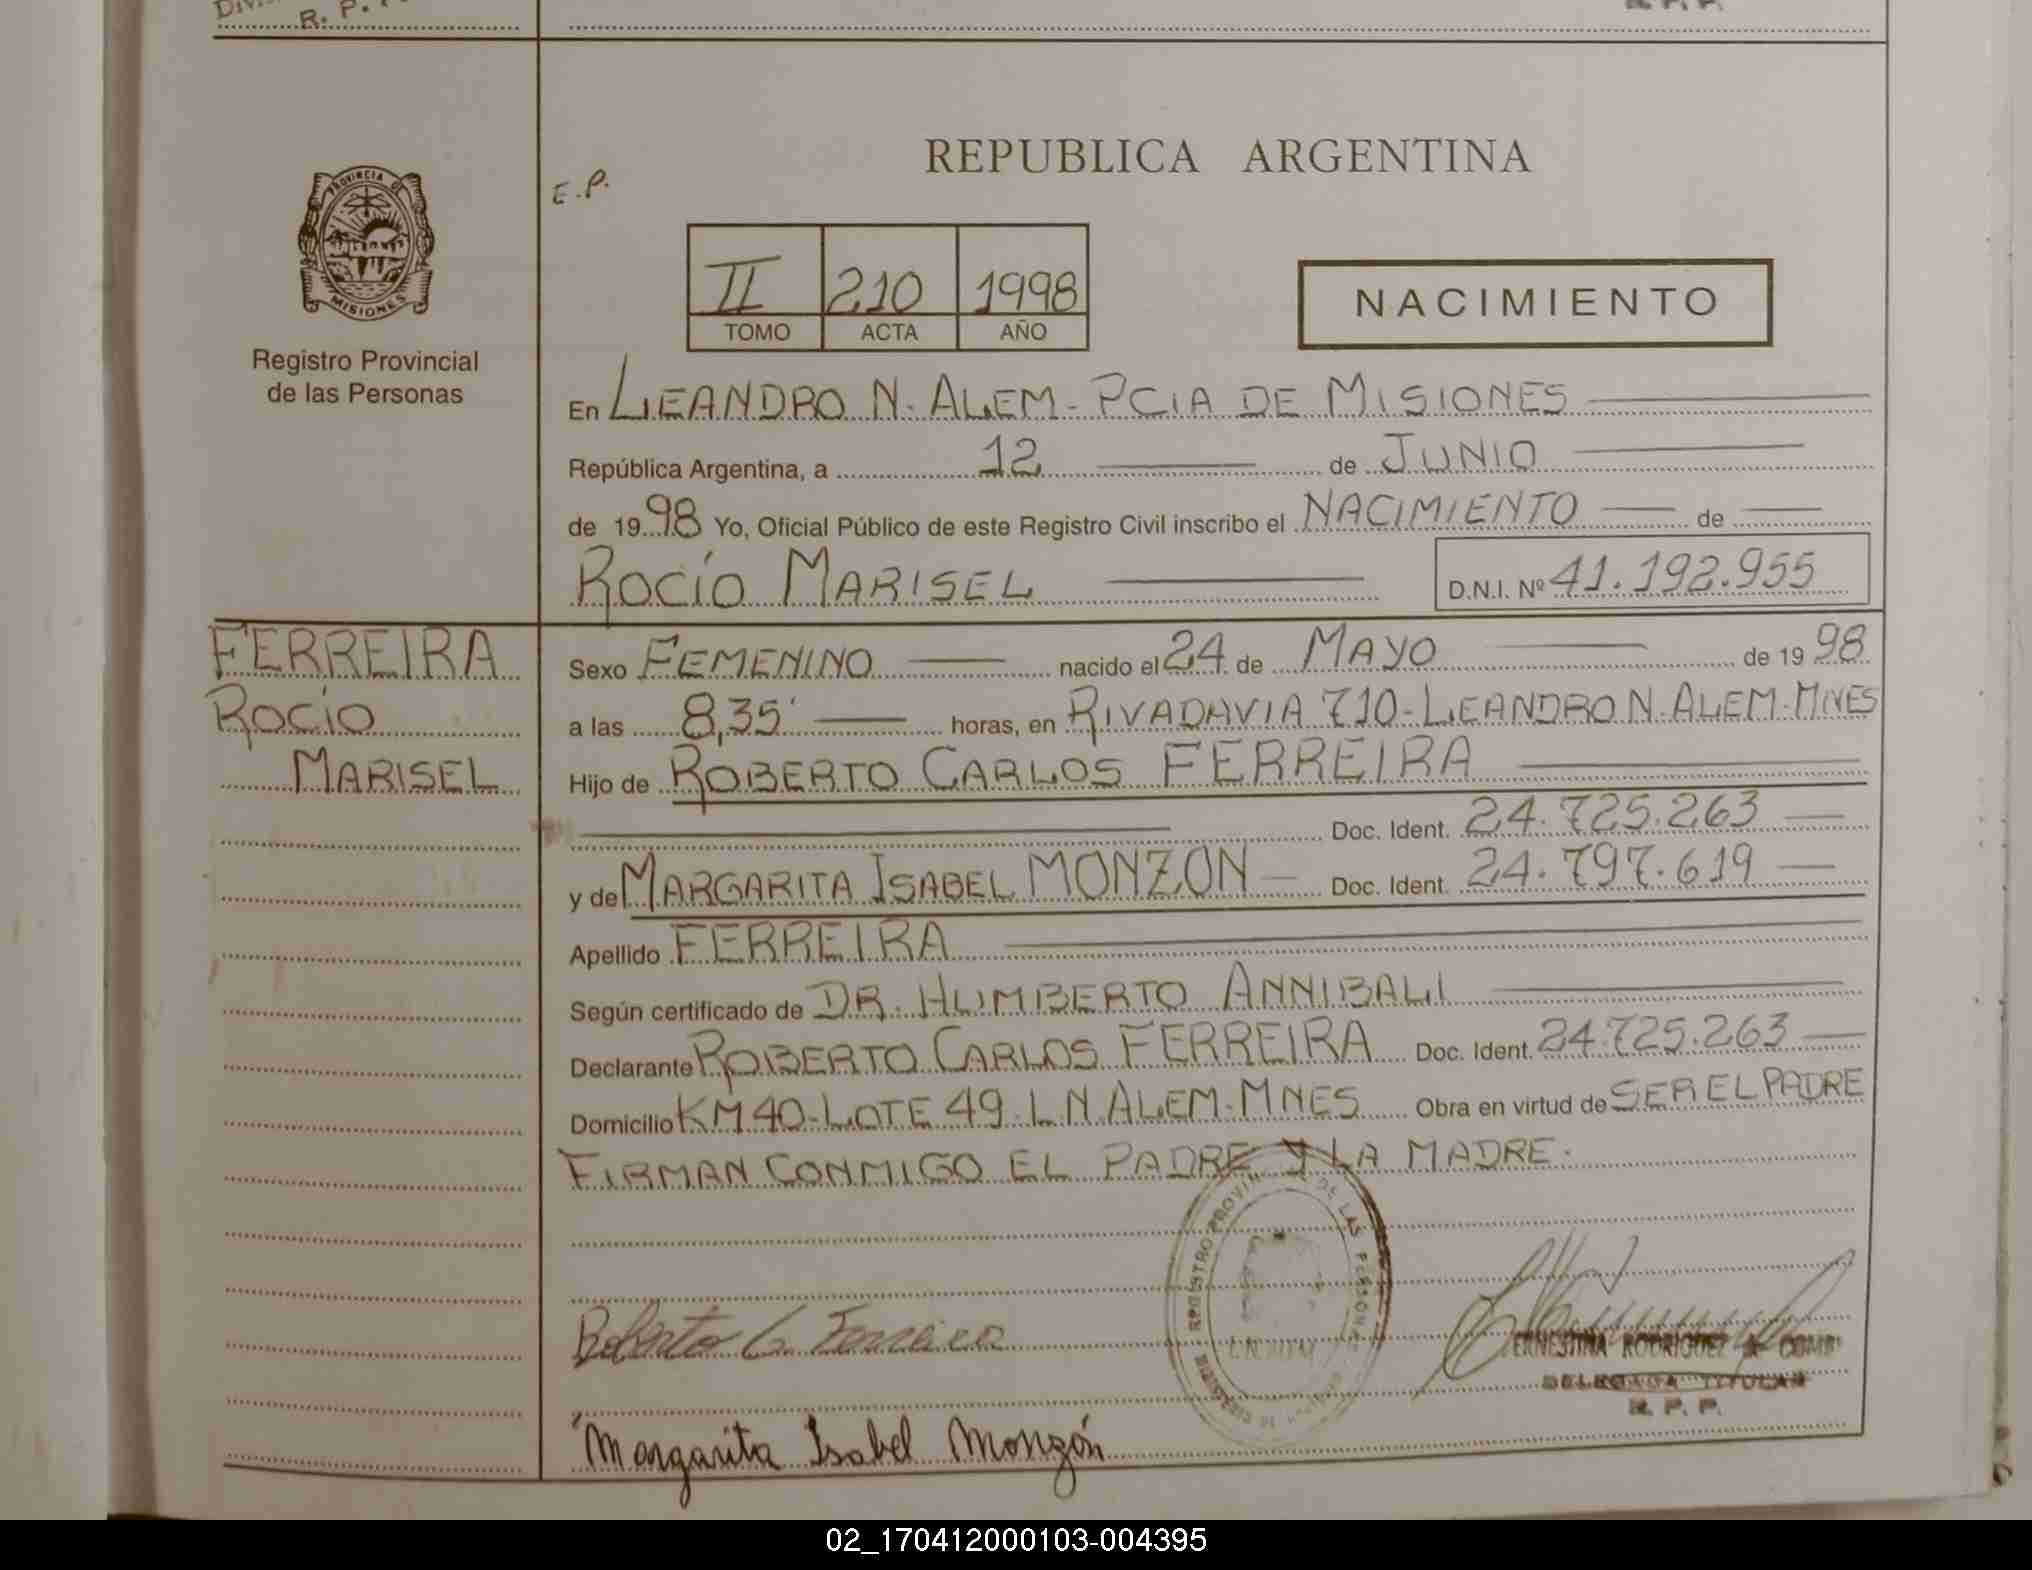 R. P.
R. P. P.
REPUBLICA ARGENTINA
E.P.
PROVINCIA DE
MISIONES
II 210 1998
TOMO ACTA AÑO
NACIMIENTO
Registro Provincial
de las Personas
En LEANDRO N. ALEM - PCIA DE MISIONES
República Argentina, a 12 de JUNIO
de 1998 Yo, Oficial Público de este Registro Civil inscribo el NACIMIENTO de
ROCÍO MARISEL D.N.I. Nº 41.192.955
FERREIRA
ROCÍO
MARISEL
Sexo FEMENINO nacido el 24 de MAYO de 1998
a las 8,35' horas, en RIVADAVIA 710 - LEANDRO N. ALEM - MNES
Hijo de ROBERTO CARLOS FERREIRA
Doc. Ident. 24.725.263
y de MARGARITA ISABEL MONZON Doc. Ident. 24.797.619
Apellido FERREIRA
Según certificado de DR. HUMBERTO ANNIBALI
Declarante ROBERTO CARLOS FERREIRA Doc. Ident. 24.725.263
Domicilio KM 40 - LOTE 49 - L N ALEM - MNES Obra en virtud de SER EL PADRE
FIRMAN CONMIGO EL PADRE Y LA MADRE.
REGISTRO PROVIN DE LAS PERSONAS
Roberto C. Ferreira
ERNESTINA RODRIGUEZ
DELEGADA TITULAR
R. P. P.
Margarita Isabel Monzón
02_170412000103-004395